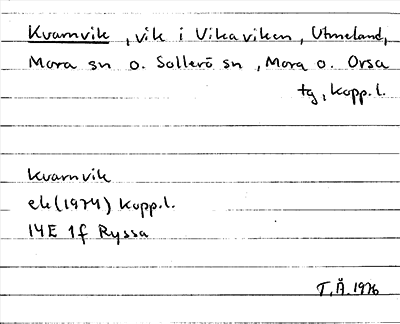 Kvarnvik, vik i Vikaviken, Utmeland,
Mora sn o. Sollerö sn, Mora o. Orsa
tg, Kopp.l.
Kvarnvik
ek (1974) Kopp.l.
14E 1f Ryssa
T.Ä. 1976